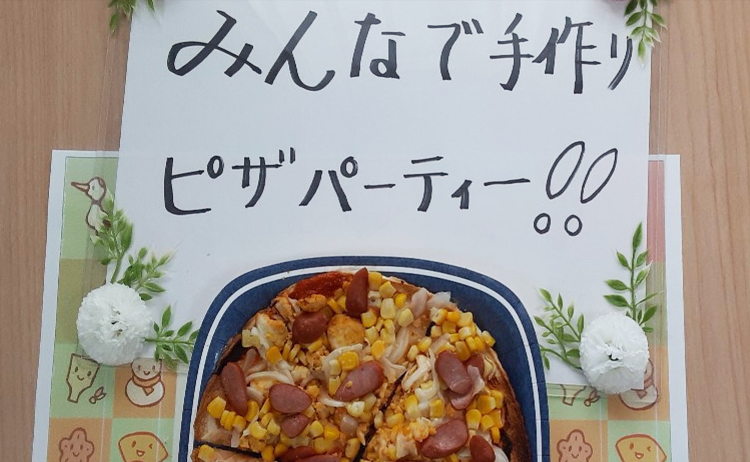 みんなで手作り
ピザパーティー!!